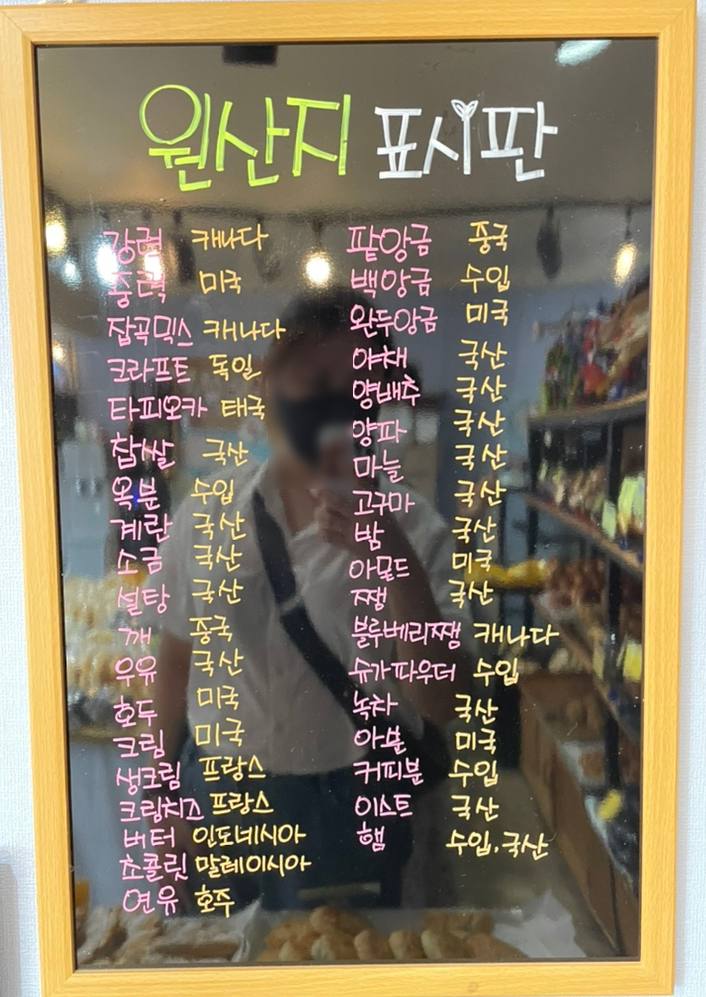 원산지 표시판
강력 캐나다
중력 미국
잡곡믹스 캐나다
크라프트 독일
타피오카 태국
찹쌀 국산
옥분 수입
계란 국산
소금 국산
설탕 국산
깨 중국
우유 국산
호두 미국
크림 미국
생크림 프랑스
크림치즈 프랑스
버터 인도네시아
쵸콜릿 말레이시아
연유 호주
팥앙금 중국
백앙금 수입
완두앙금 미국
야채 국산
양배추 국산
양파 국산
마늘 국산
고구마 국산
밤 국산
아몬드 미국
쨈 국산
블루베리쨈 캐나다
슈가파우더 수입
녹차 국산
아분 미국
커피분 수입
이스트 국산
햄 수입.국산